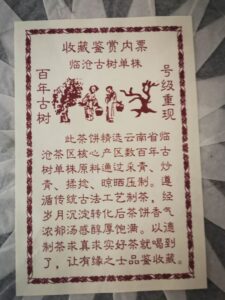 收藏鉴赏内票
临沧古树单株
百年古树
号级重现
此茶饼精选云南省临
沧茶区核心产区数百年古
树单株原料通过采青、炒
青、揉捻、晾晒压制。遵
循传统古法工艺制茶，经
岁月沉淀转化后茶饼香气
浓郁汤感醇厚饱满。以德
制茶求真求实好茶就喝到
了，让有缘之士品鉴收藏。